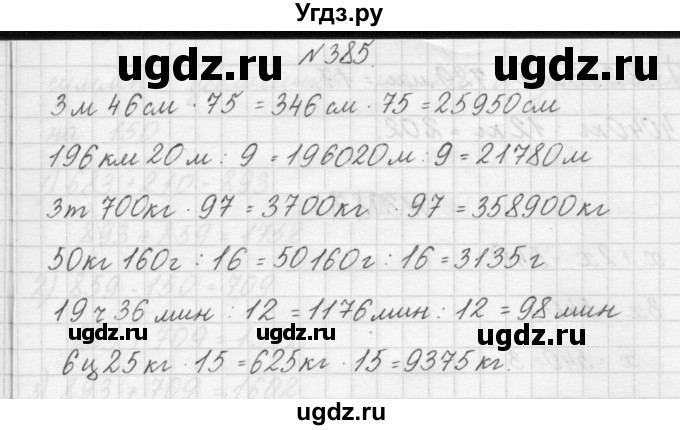 Угдз.ру
№385
ugdz.ru ugdz.ru
3м 46см · 75 = 346см · 75 = 25950см
196км 20м : 9 = 196020м : 9 = 21780м
ugdz.ru ugdz.ru
3т 700кг · 97 = 3700кг · 97 = 358900кг
50кг 160г : 16 = 50160г : 16 = 3135г
ugdz.ru ugdz.ru
19ч 36мин : 12 = 1176мин : 12 = 98мин
ugdz.ru ugdz.ru
6ц 25кг · 15 = 625кг · 15 = 9375кг.
ugdz.ru